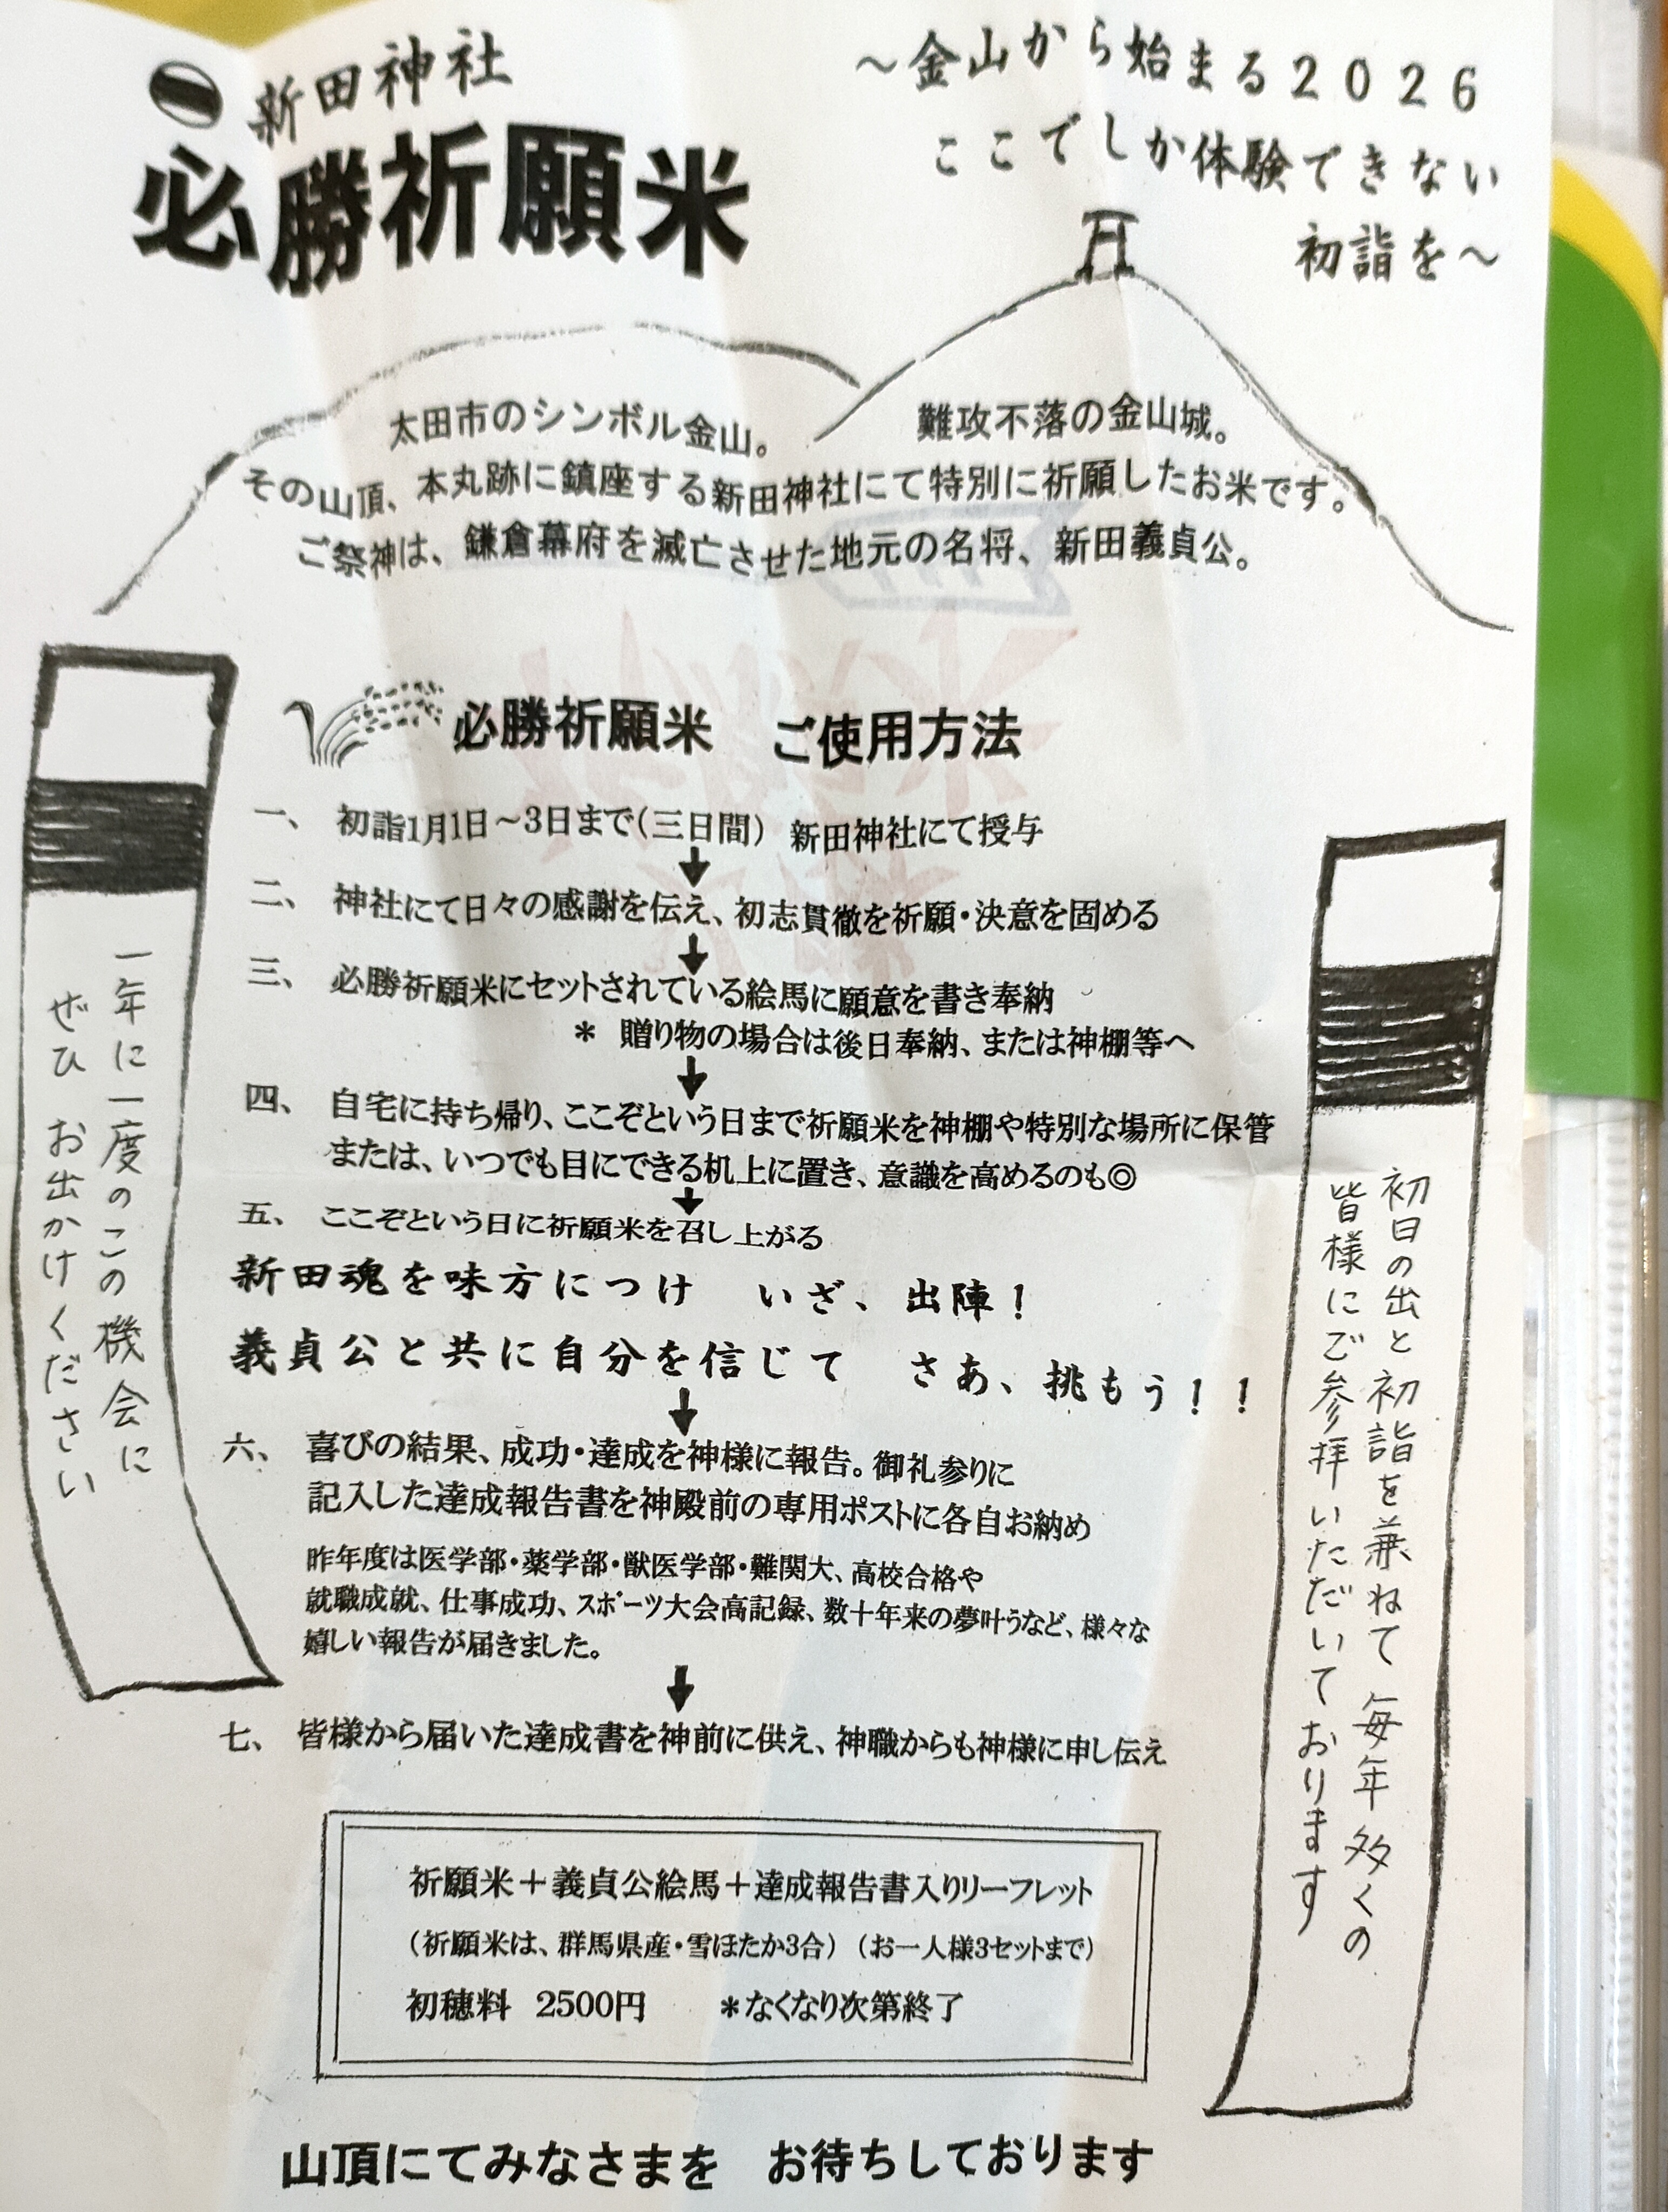 新田神社
必勝祈願米
～金山から始まる2026
ここでしか体験できない
初詣を～
太田市のシンボル金山。 難攻不落の金山城。
その山頂、本丸跡に鎮座する新田神社にて特別に祈願したお米です。
ご祭神は、鎌倉幕府を滅亡させた地元の名将、新田義貞公。
必勝祈願米 ご使用方法
一、 初詣1月1日～3日まで(三日間) 新田神社にて授与
二、 神社にて日々の感謝を伝え、初志貫徹を祈願・決意を固める
三、 必勝祈願米にセットされている絵馬に願意を書き奉納
＊ 贈り物の場合は後日奉納、または神棚等へ
四、 自宅に持ち帰り、ここぞという日まで祈願米を神棚や特別な場所に保管
または、いつでも目にできる机上に置き、意識を高めるのも◎
五、 ここぞという日に祈願米を召し上がる
新田魂を味方につけ いざ、出陣！
義貞公と共に自分を信じて さあ、挑もう！！
六、 喜びの結果、成功・達成を神様に報告。御礼参りに
記入した達成報告書を神殿前の専用ポストに各自お納め
昨年度は医学部・薬学部・獣医学部・難関大、高校合格や
就職成就、仕事成功、スポーツ大会高記録、数十年来の夢叶うなど、様々な
嬉しい報告が届きました。
七、 皆様から届いた達成書を神前に供え、神職からも神様に申し伝え
祈願米＋義貞公絵馬＋達成報告書入りリーフレット
（祈願米は、群馬県産・雪ほたか3合）（お一人様3セットまで）
初穂料 2500円 ＊なくなり次第終了
山頂にてみなさまを お待ちしております
初日の出と初詣を兼ねて毎年多くの
皆様にご参拝いただいております
一年に一度のこの機会に
ぜひ お出かけください